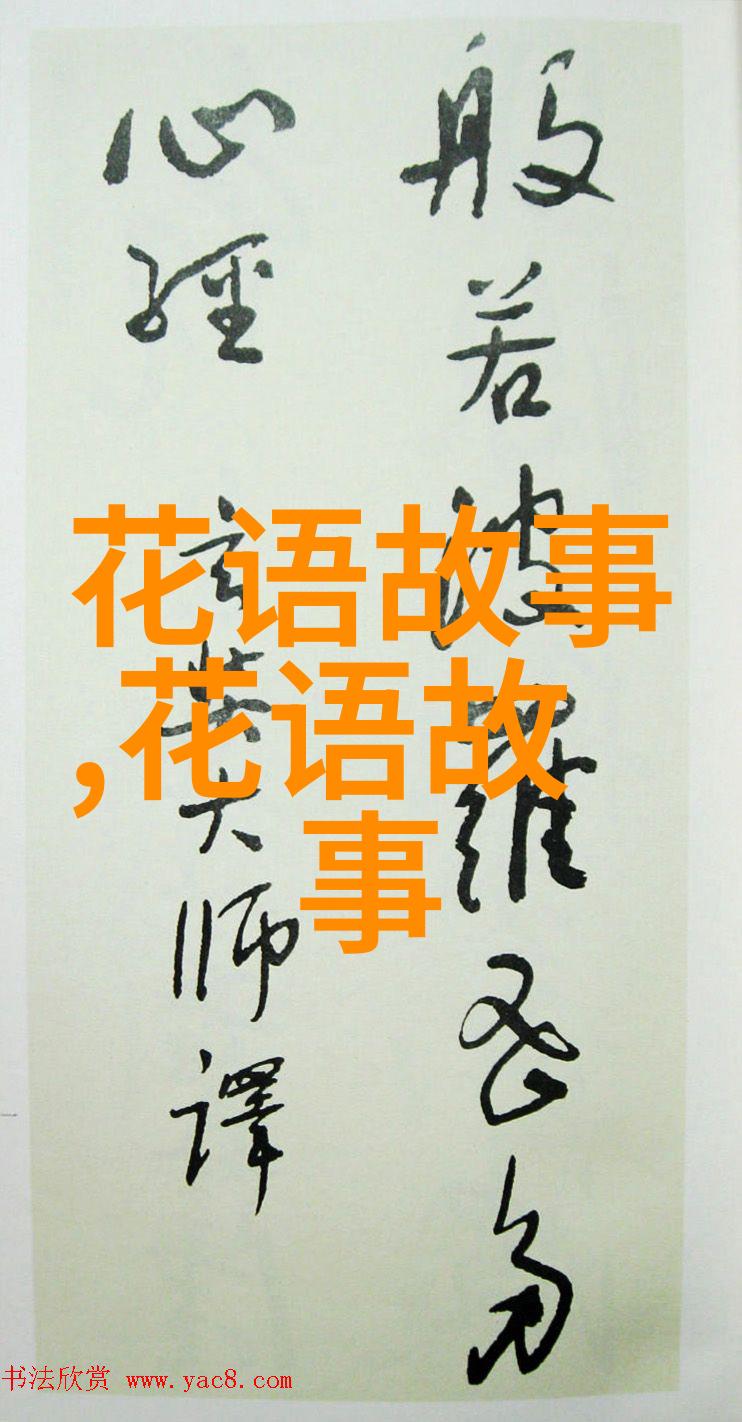 般若波羅蜜多
心經 玄奘大师譯
花语故事
,花语故
事
书法欣赏 www.yac8.com